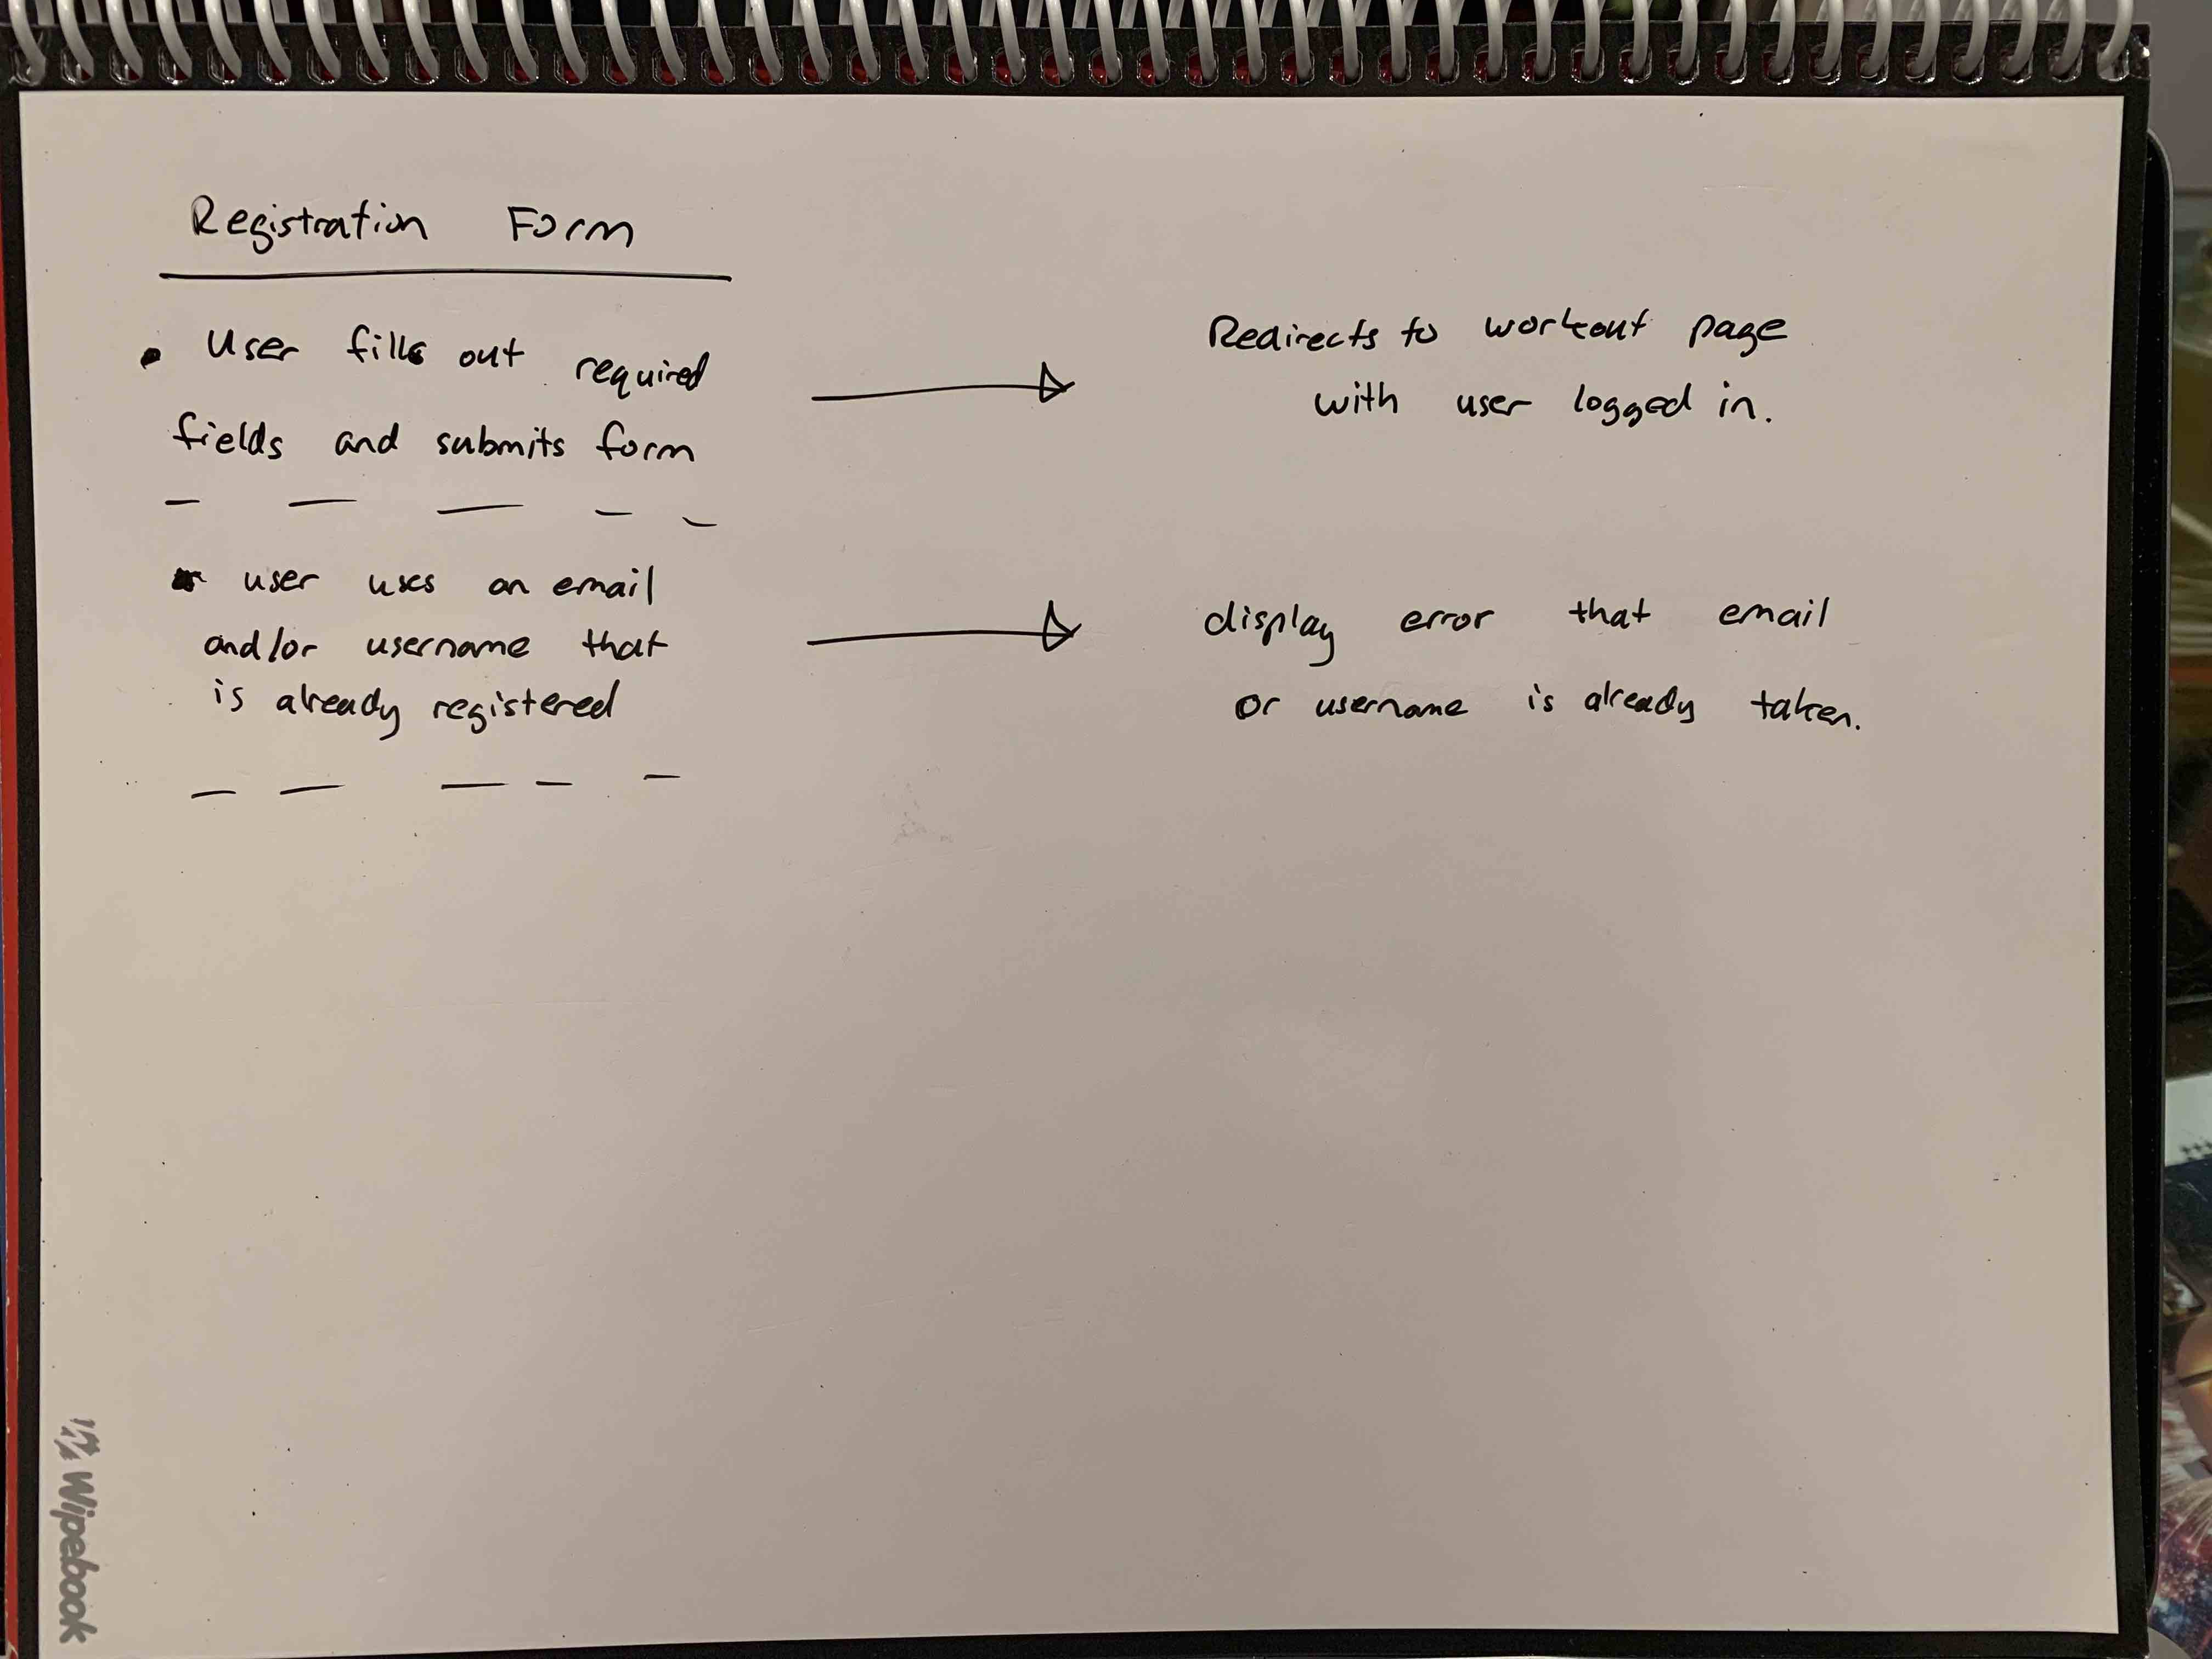 Registration Form
• User fills out required
fields and submits form
Redirects to workout page
with user logged in.
user uses an email
and/or username that
is already registered
display error that email
or username is already taken.
Wipebook